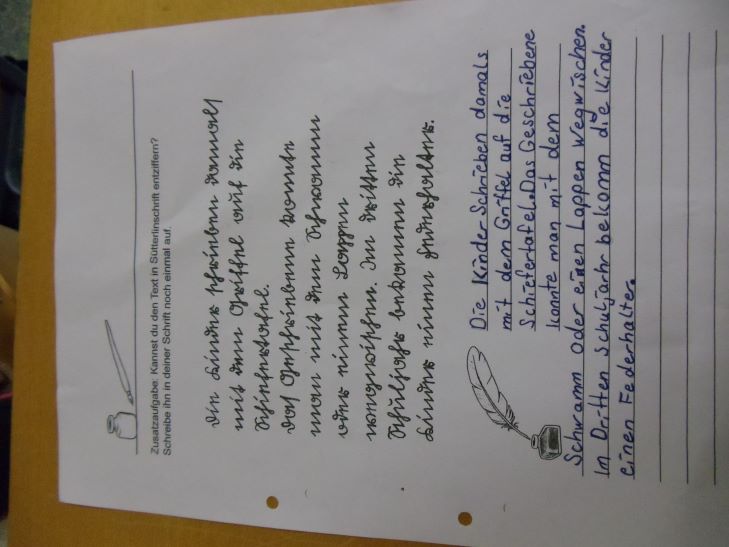 Zusatzaufgabe: Kannst du den Text in Sütterlinschrift entziffern?
Schreibe ihn in deiner Schrift noch einmal auf.
Die Kinder schrieben damals
mit dem Griffel auf die
Schiefertafel.
Das Geschriebene konnte
man mit dem Schwamm
oder einem Lappen
wegwischen. Im dritten
Schuljahr bekamen die
Kinder einen Federhalter.
Die Kinder Schrieben damals
mit dem Griffel auf die
Schiefertafel. Das Geschriebene
konnte man mit dem
Schwamm Oder einen Lappen Wegwischen.
Im Dritten Schuljahr bekomm die Kinder
einen Federhalter.